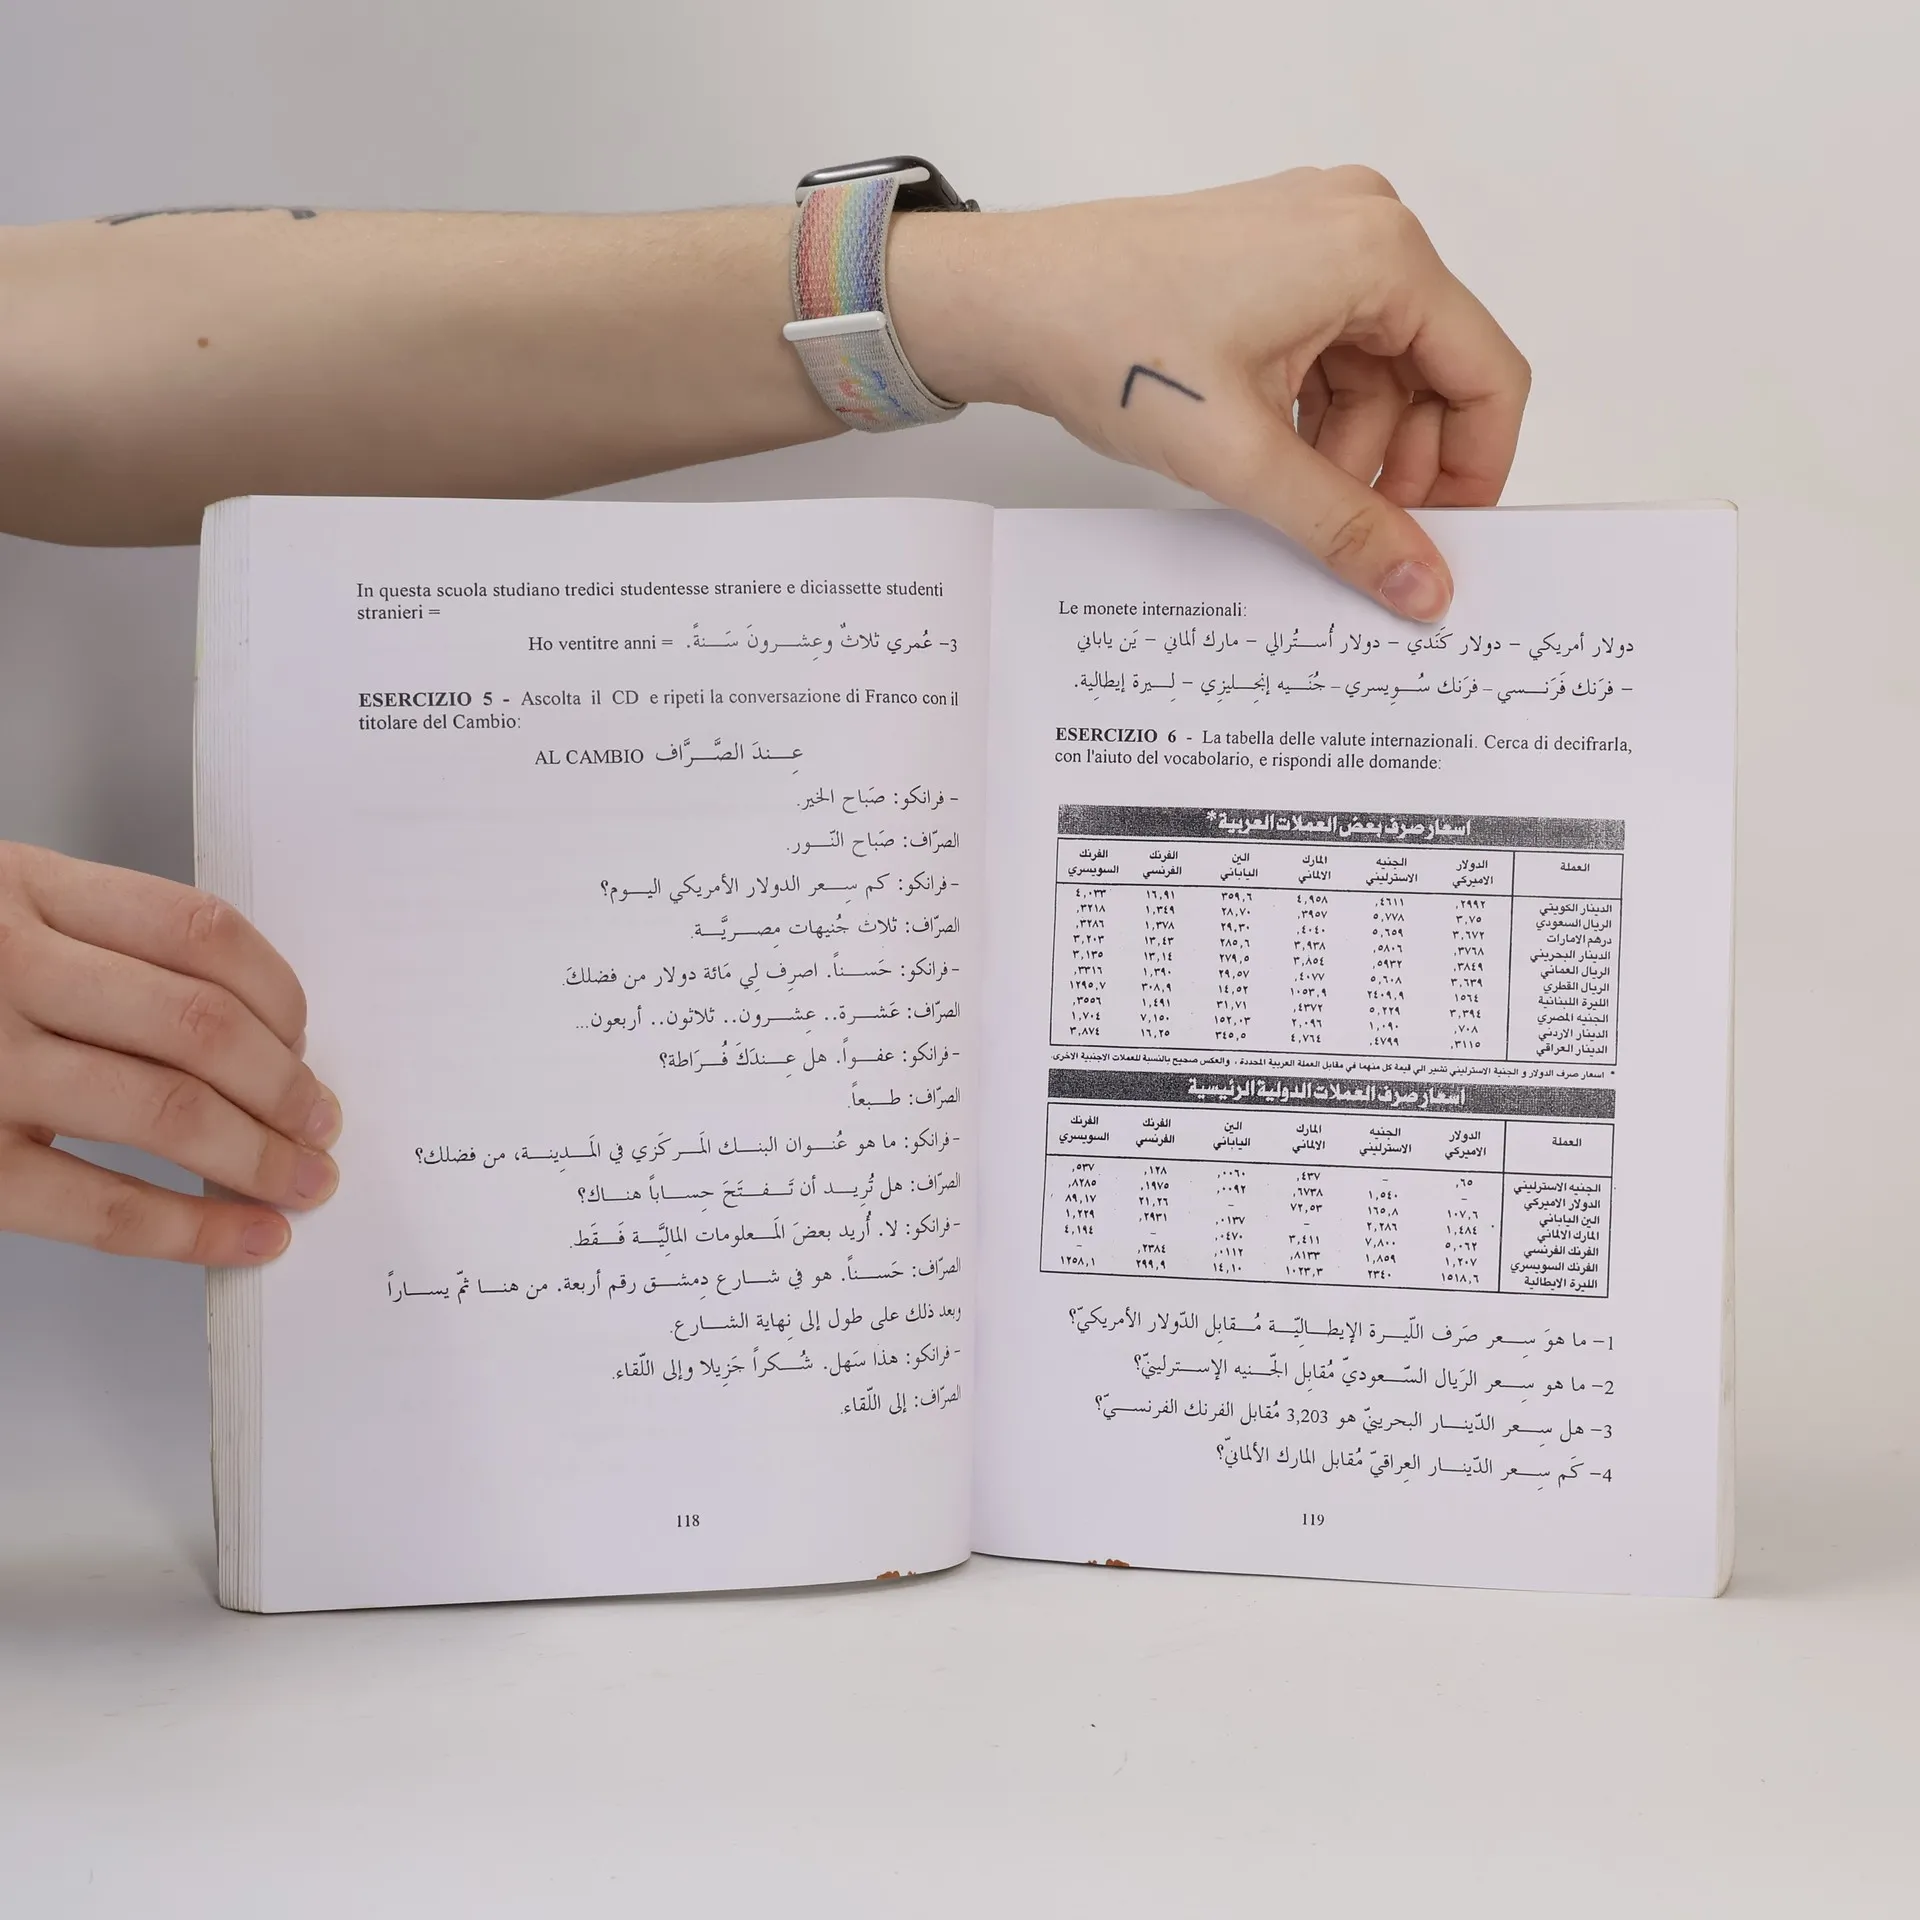 In questa scuola studiano tredici studentesse straniere e diciassette studenti
stranieri =
3- عُمري ثلاثٌ وعِشــرونَ سَــنةً. = Ho ventitre anni
ESERCIZIO 5 - Ascolta il CD e ripeti la conversazione di Franco con il
titolare del Cambio:
AL CAMBIO عِــندَ الصَّــرَّاف
- فرانكو: صَباح الخير.
الصرّاف: صَباح النّــور.
- فرانكو: كم سِــعر الدولار الأمريكي اليــوم؟
الصرّاف: ثلاث جُنيهات مِصــريَّــة.
- فرانكو: حَســناً. اصرِف لِي مَائة دولار من فضلكَ.
الصرّاف: عَشــرة.. عِشــرون.. ثلاثون.. أربعون...
- فرانكو: عفــواً. هل عِــندَكَ فُــرَاطة؟
الصرّاف: طــبعاً.
- فرانكو: ما هو عُنــوان البنــك المَــركَزي في المَــدِينــة، من فضلك؟
الصرّاف: هل تُرِيــد أن تَــفــتَحَ حِســاباً هنــاك؟
- فرانكو: لا. أُريد بعضَ المَــعلومات المالِيَّــة فَــقَط.
الصرّاف: حَســناً. هو في شــارع دِمشــق رقم أربعة. من هنــا ثمّ يســاراً
وبعد ذلك على طول إلى نِهاية الشــارع.
- فرانكو: هذا سَهل. شُــكراً جَزِيلا وإلى اللّقاء.
الصرّاف: إلى اللّقاء.
118
Le monete internazionali:
دولار أمريكي – دولار كَنَدي – دولار أُســتُرالي – مارك ألماني – يَن ياباني
– فرَنك فَرَنــسي – فرَنك سُــويسري – جُنَــيه إنجــليزي – لِــيرة إيطالِية.
ESERCIZIO 6 - La tabella delle valute internazionali. Cerca di decifrarla,
con l'aiuto del vocabolario, e rispondi alle domande:
اسعار صرف بعض العملات العربية*
العملة الدولار الاميركي الجنيه الاسترليني المارك الالماني الين الياباني الفرنك الفرنسي الفرنك السويسري
الدينار الكويتي ,٢٩٩٢ ,٤٦١١ ٤,٩٥٨ ٣٥٩,٦ ١٦,٩١ ٤,٠٣٣
الريال السعودي ٣,٧٥ ٥,٧٧٨ ,٣٩٥٧ ٢٨,٧٠ ١,٣٤٩ ,٣٢١٨
درهم الامارات ٣,٦٧٢ ٥,٦٥٩ ,٤٠٤٠ ٢٩,٣٠ ١,٣٧٨ ,٣٢٨٦
الدينار البحريني ,٣٧٦٨ ,٥٨٠٦ ٣,٩٣٨ ٢٨٥,٦ ١٣,٤٣ ٣,٢٠٣
الريال العماني ,٣٨٤٩ ,٥٩٣٢ ٣,٨٥٤ ٢٧٩,٥ ١٣,١٤ ٣,١٣٥
الريال القطري ٣,٦٣٩ ٥,٦٠٨ ,٤٠٧٧ ٢٩,٥٧ ١,٣٩٠ ,٣٣١٦
الليرة اللبنانية ١٥٦٤ ٢٤٠٩,٩ ١٠٥٣,٩ ١٤,٥٢ ٣٠٨,٩ ١٢٩٥,٧
الجنيه المصري ٣,٣٩٤ ٥,٢٢٩ ,٤٣٧٢ ٣١,٧١ ١,٤٩١ ,٣٥٥٦
الدينار الاردني ,٧٠٨ ١,٠٩٠ ٢,٠٩٦ ١٥٢,٠٣ ٧,١٥٠ ١,٧٠٤
الدينار العراقي ,٣١١٥ ,٤٧٩٩ ٤,٧٦٤ ٣٤٥,٥ ١٦,٢٥ ٣,٨٧٤
* اسعار صرف الدولار و الجنية الاسترليني تشير الي قيمة كل منهما في مقابل العملة العربية المحددة ، والعكس صحيح بالنسبة للعملات الاجنبية الاخرى.
اسعار صرف العملات الدولية الرئيسية
العملة الدولار الاميركي الجنيه الاسترليني المارك الالماني الين الياباني الفرنك الفرنسي الفرنك السويسري
الجنيه الاسترليني ,٦٥ – ,٤٣٧ ,٠٠٦٠ ,١٢٨ ,٥٣٧
الدولار الاميركي – ١,٥٤٠ ,٦٧٣٨ ,٠٠٩٢ ,١٩٧٥ ,٨٢٨٥
الين الياباني ١٠٧,٦ ١٦٥,٨ ٧٢,٥٣ – ٢١,٢٦ ٨٩,١٧
المارك الالماني ١,٤٨٤ ٢,٢٨٦ – ,٠١٣٧ ,٢٩٣١ ١,٢٢٩
الفرنك الفرنسي ٥,٠٦٢ ٧,٨٠٠ ٣,٤١١ ,٠٤٧٠ – ٤,١٩٤
الفرنك السويسري ١,٢٠٧ ١,٨٥٩ ,٨١٣٣ ,٠١١٢ ,٢٣٨٤ –
الليرة الايطالية ١٥١٨,٦ ٢٣٤٠ ١٠٢٣,٣ ١٤,١٠ ٢٩٩,٩ ١٢٥٨,١
1– ما هوَ سِــعر صَرف اللّيــرة الإيطــالِيّــة مُــقابِل الدّولار الأمريكيّ؟
2– ما هو سِــعر الرَيال السّــعوديّ مُقابِل الجّــنيه الإســترلينيّ؟
3– هل سِــعر الدّينــار البحرينيّ هو 3,203 مُقابل الفرنك الفرنســيّ؟
4– كَم سِــعر الدّينــار العِراقيّ مُقابل المارك الألمانيّ؟
119